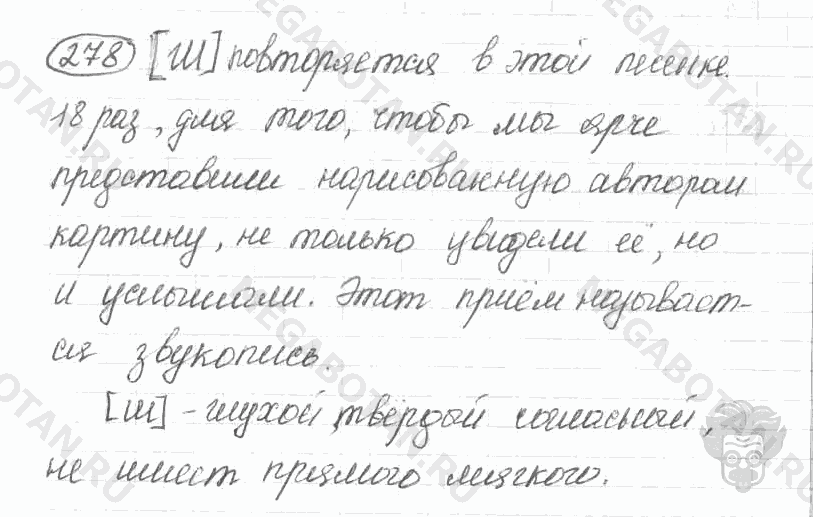 278 [Ш] повторяется в этой песенке.
18 раз, для того, чтобы мы ярче
представили нарисованную автором
картину, не только увидели её, но
и услышали. Этот приём называет-
ся звукопись.
[Ш] - глухой, твёрдый согласный,
не имеет прямого мягкого.
MEGABOTAN.RU